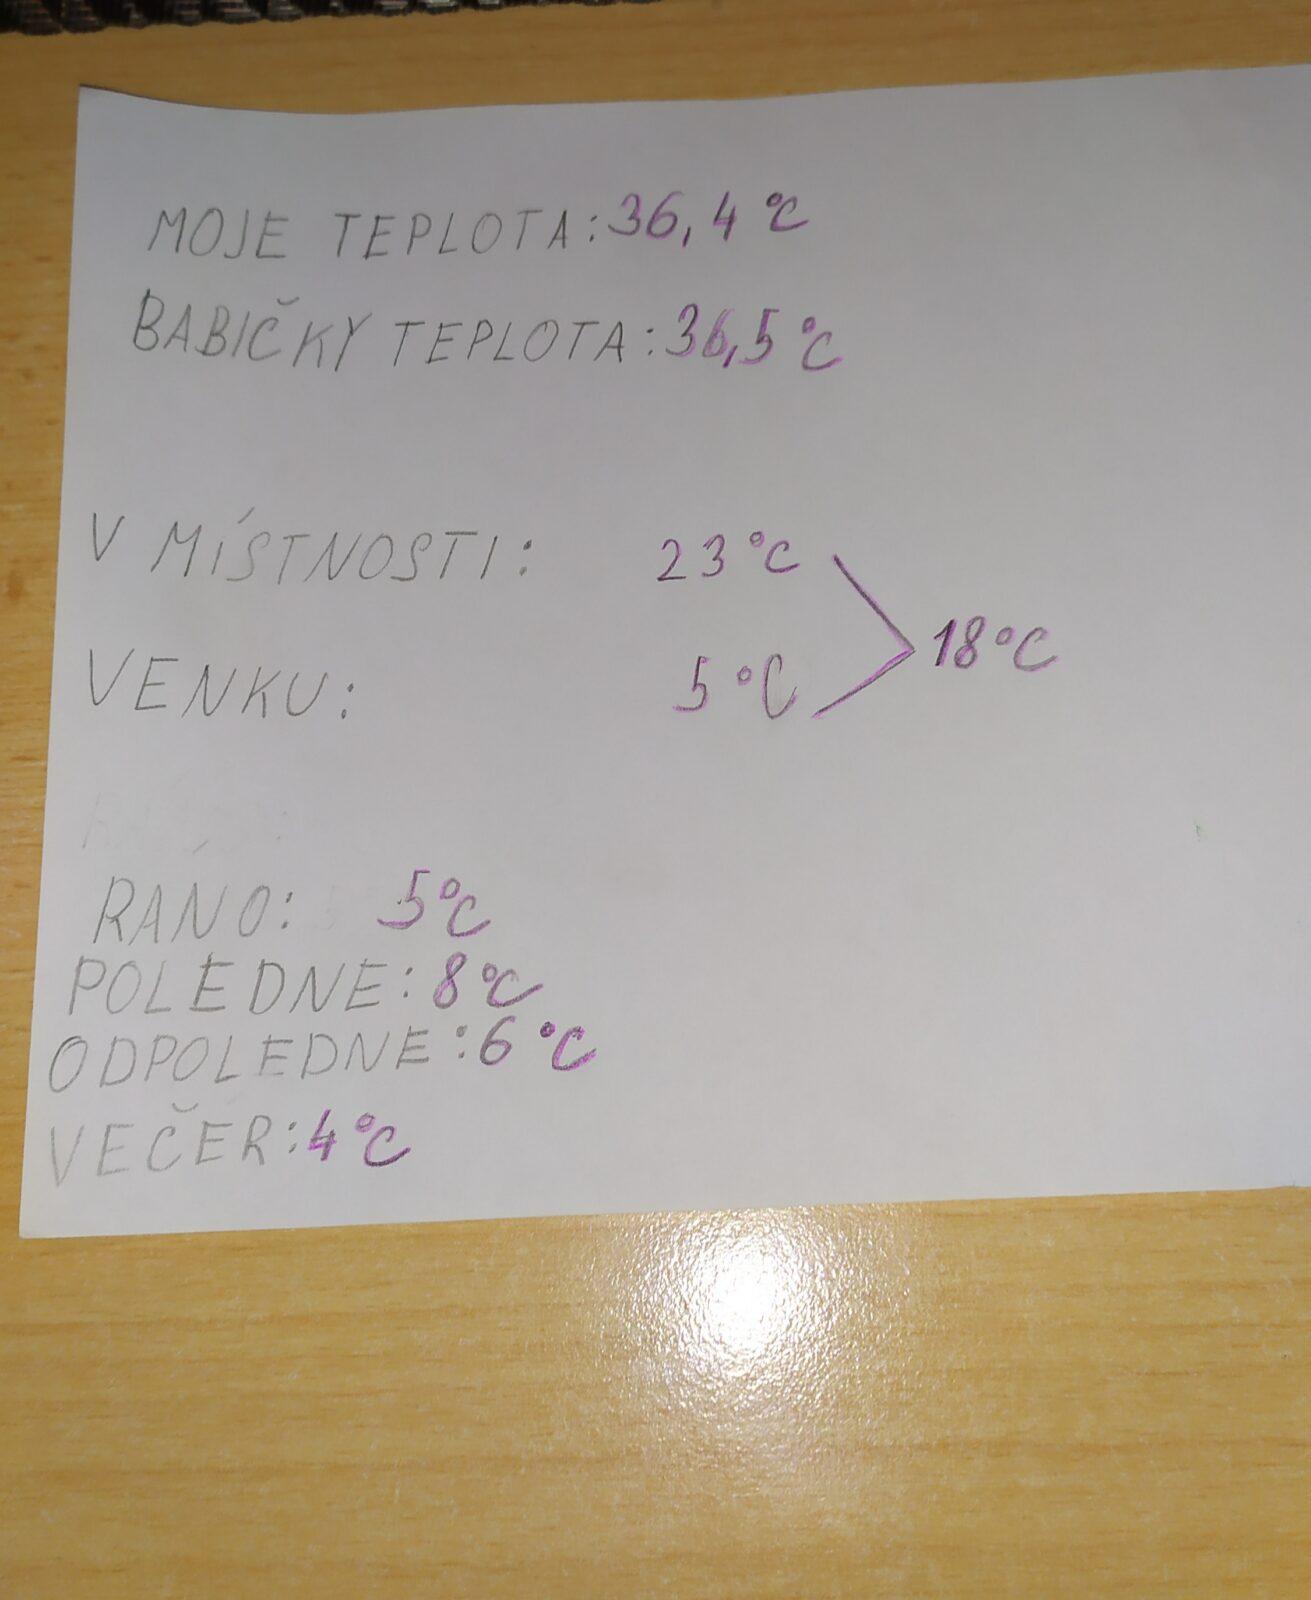 MOJE TEPLOTA: 36,4 °C
BABIČKY TEPLOTA: 36,5 °C
V MÍSTNOSTI: 23 °C
18 °C
VENKU: 5 °C
RANO: 5 °C
POLEDNE: 8 °C
ODPOLEDNE: 6 °C
VEČER: 4 °C